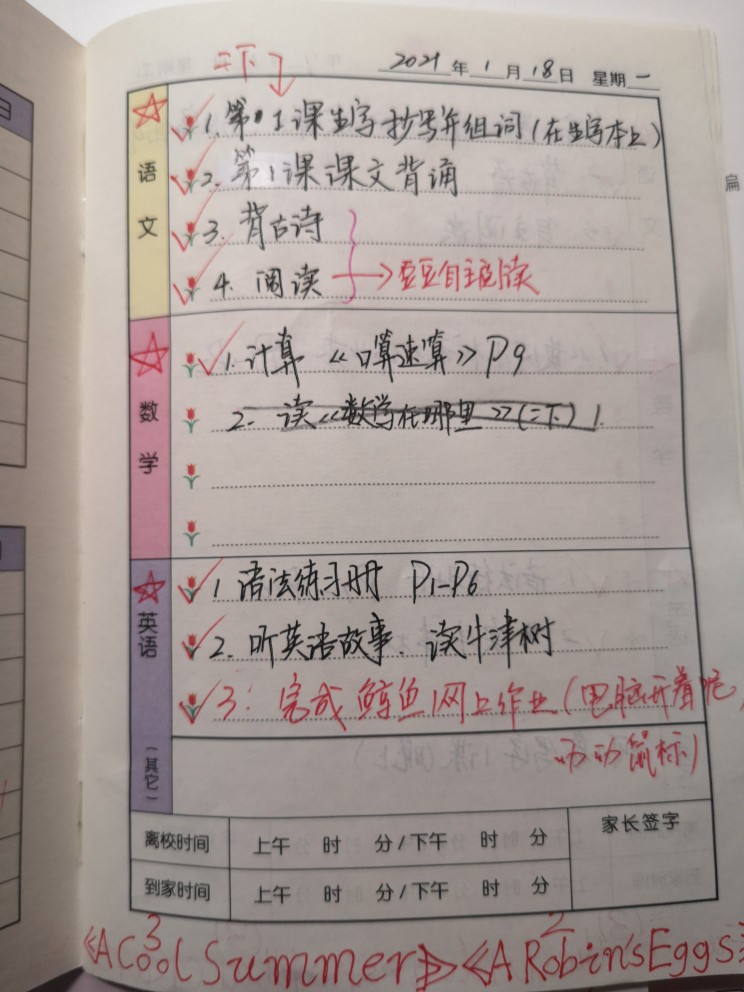 二下
2021年1月18日 星期一
语文
1. 第1课生字抄写并组词(在生字本上)
2. 第1课课文背诵
3. 背古诗
4. 阅读 → 豆豆自主阅读
数学
1. 计算 《口算速算》P9
2. 读《数学在哪里》(二下)
英语
1 语法练习册 P1-P6
2. 听英语故事、读牛津树
3: 完成鲸鱼网上作业(电脑开着呢,
动动鼠标)
(其它)
离校时间 上午 时 分/下午 时 分 家长签字
到家时间 上午 时 分/下午 时 分
3 2
《A Cool Summer》《A Robin's Eggs》